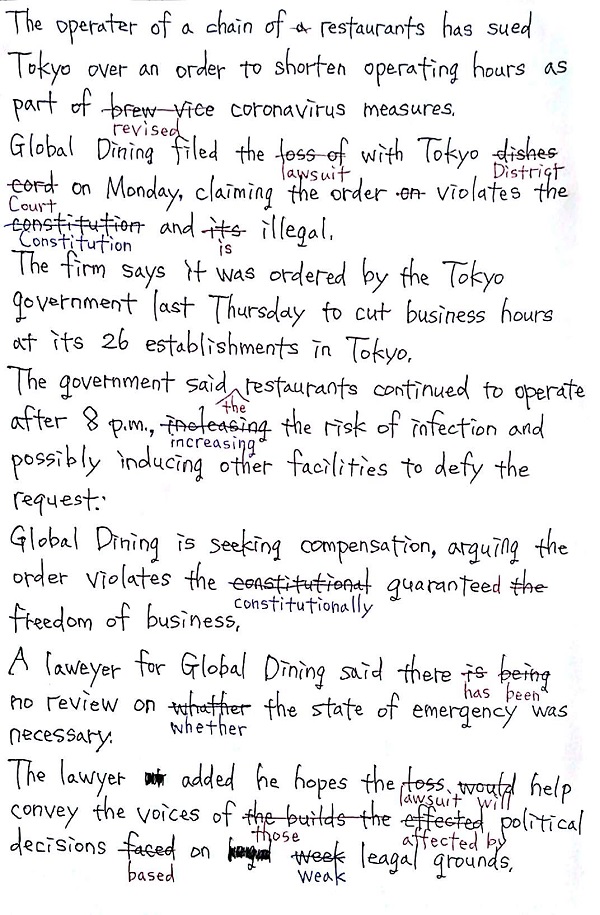 The operater of a chain of a restaurants has sued
Tokyo over an order to shorten operating hours as
part of brew vice coronavirus measures.
revised
Global Dining filed the loss of with Tokyo dishes
lawsuit District
cord on Monday, claiming the order on violates the
Court
constitution and its illegal.
Constitution is
The firm says it was ordered by the Tokyo
government last Thursday to cut business hours
at its 26 establishments in Tokyo.
The government said restaurants continued to operate
the
after 8 p.m., incleasing the risk of infection and
increasing
possibly inducing other facilities to defy the
request.
Global Dining is seeking compensation, arguing the
order violates the constitutional guaranteed the
constitutionally
freedom of business.
A laweyer for Global Dining said there is being
has been
no review on whather the state of emergency was
whether
necessary.
The lawyer added he hopes the loss would help
lawsuit will
convey the voices of the builds the effected political
those affected by
decisions faced on week leagal grounds.
based weak